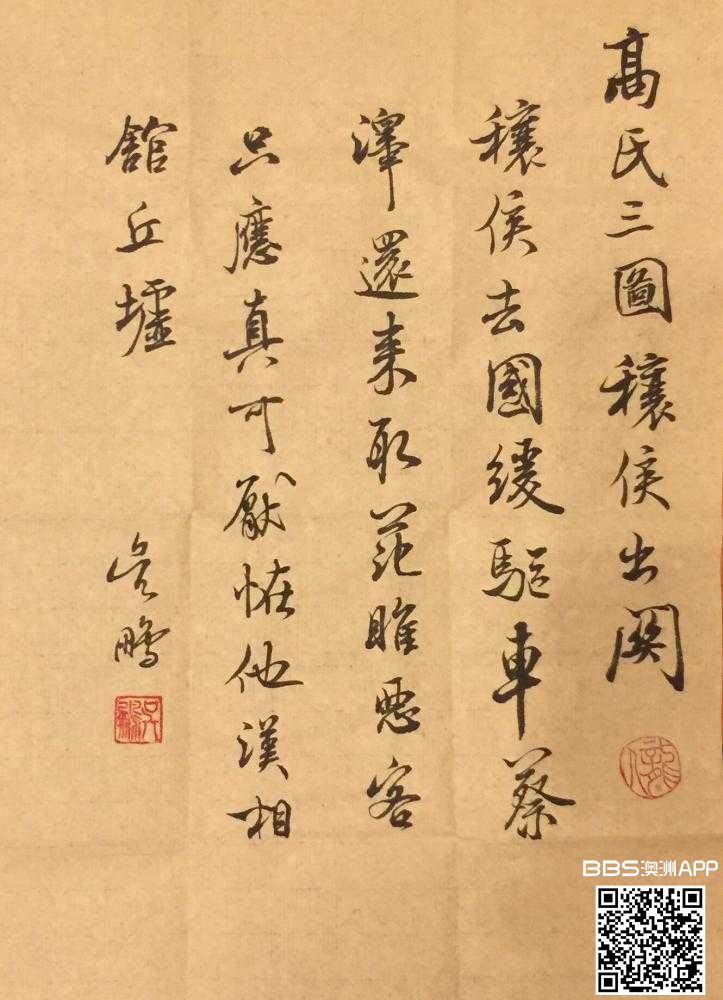 高氏三圖穰侯出関
穰侯去國緩驅車蔡
澤還来取范睢惡客
只應真可厭怪他漢相
舘丘墟
吴鵬
BBS澳洲APP